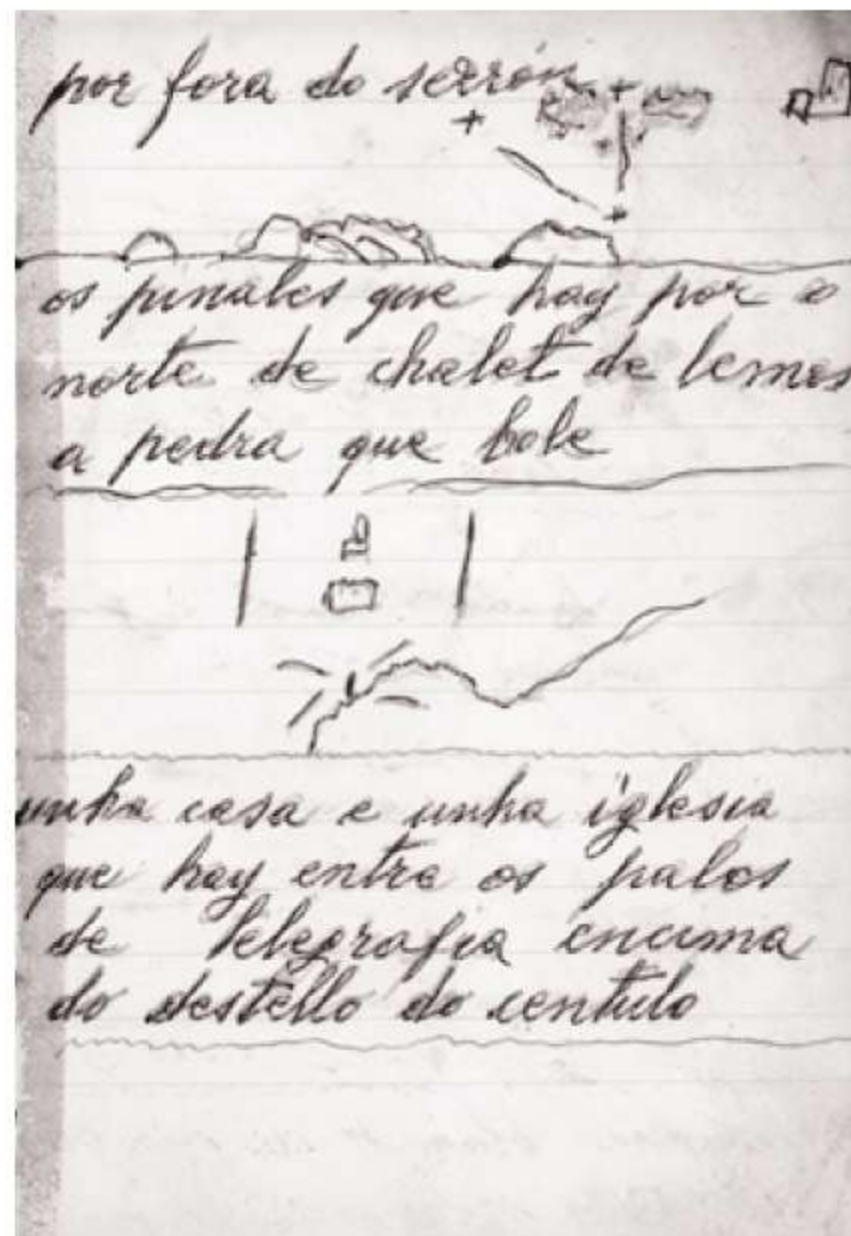 por fora do serrón
os pinales que hay por o
norte de chalet de lemos
a pedra que bole
unha casa e unha iglesia
que hay entre os palos
de Telegrafia encima
do destello do centulo